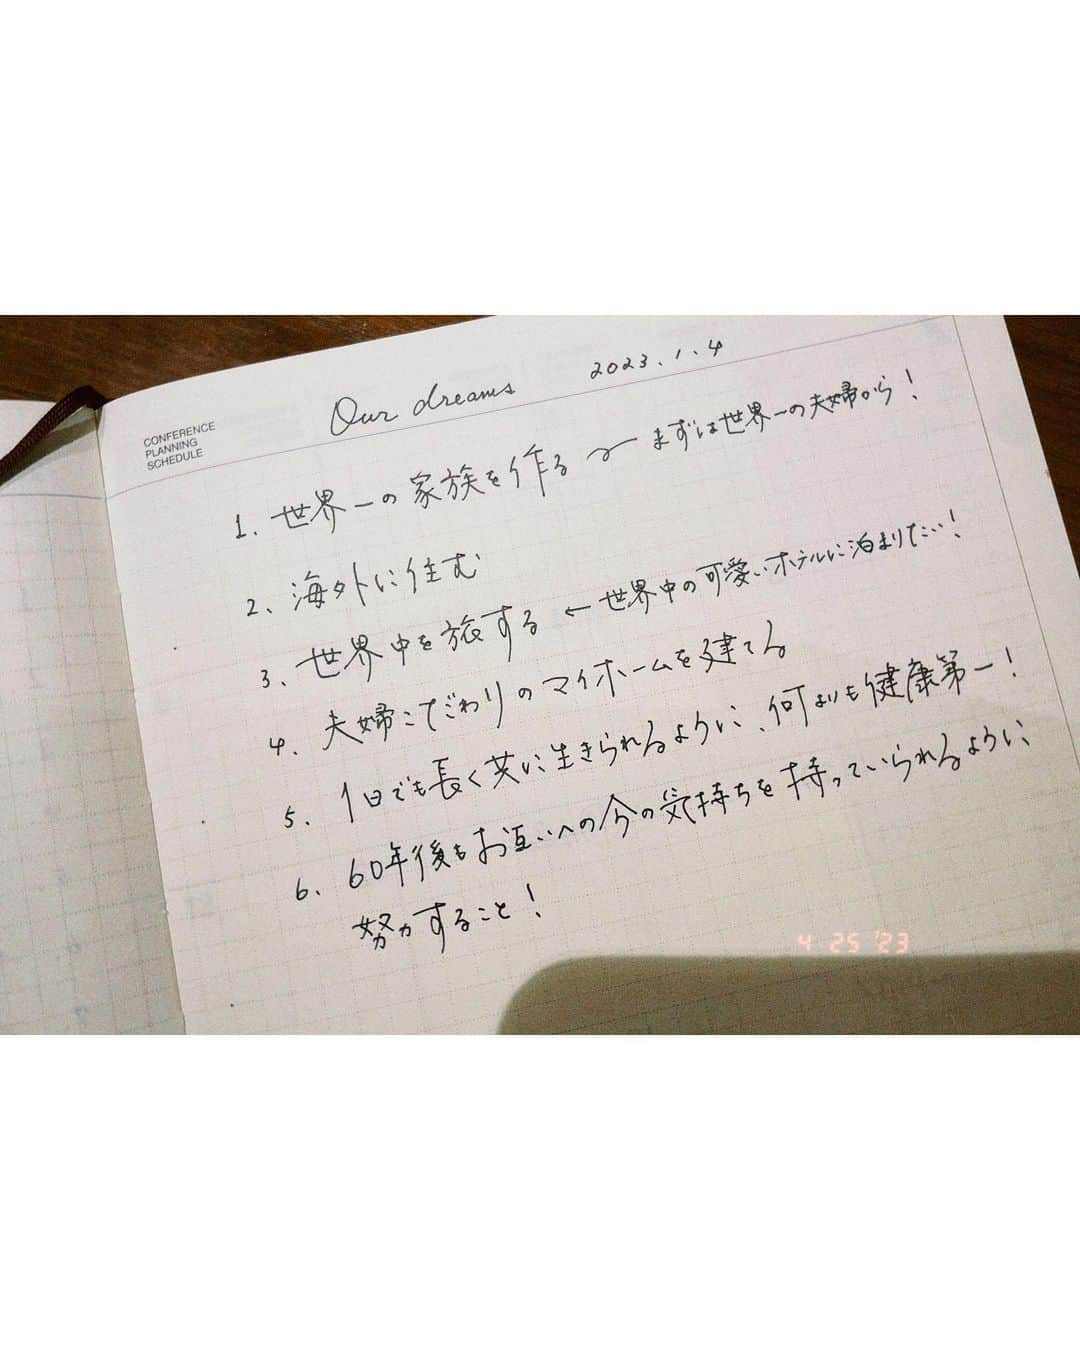 Our dreams 2023.1.4
CONFERENCE
PLANNING
SCHEDULE
1. 世界一の家族を作る ← まずは世界一の夫婦から！
2. 海外に住む
3. 世界中を旅する ← 世界中の可愛いホテルに泊まりたい！
4. 夫婦こだわりのマイホームを建てる
5. 1日でも長く共に生きられるように、何よりも健康第一！
6. 60年後もお互いへの今の気持ちを持っていられるように
努力すること！
4 25 '23